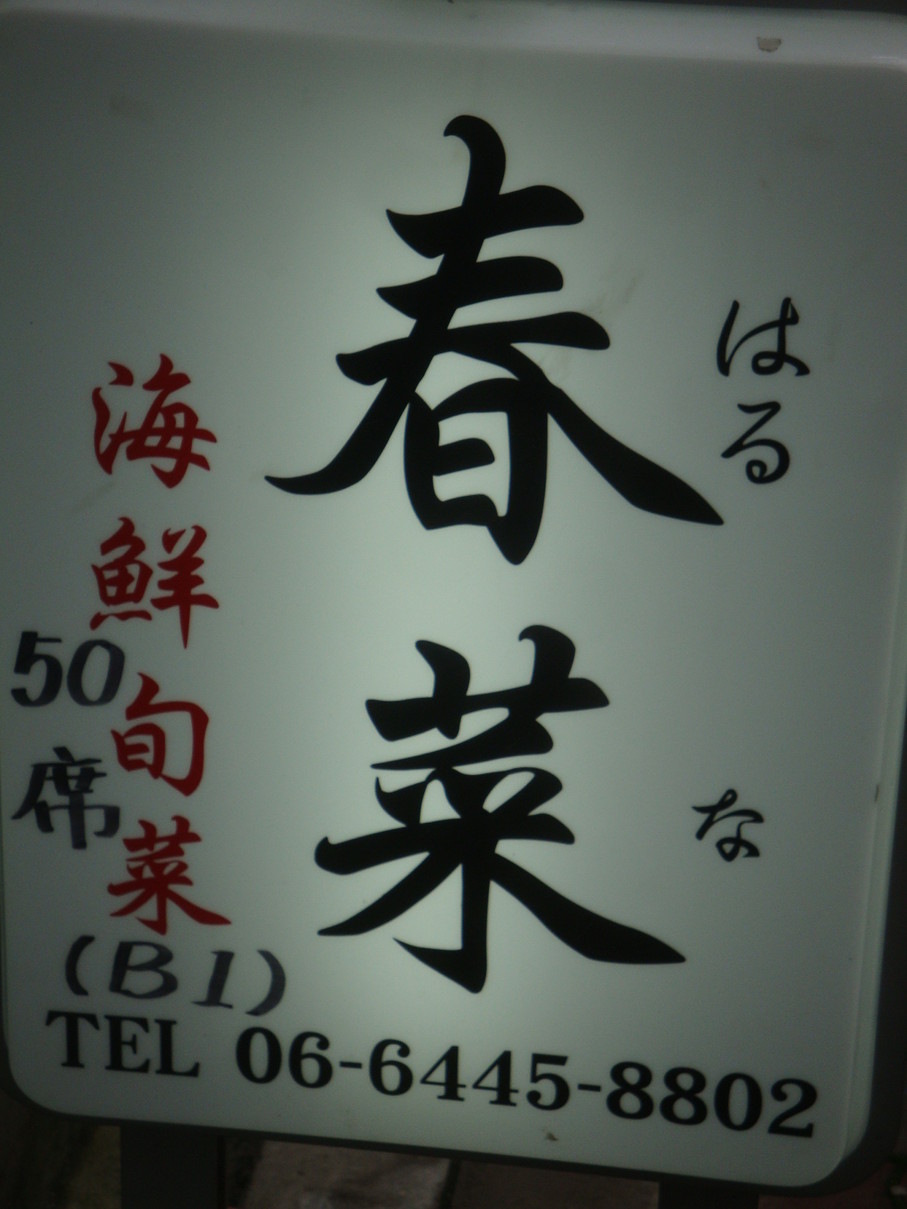 はるな
春菜
海鮮旬菜
50席
(B1)
TEL 06-6445-8802